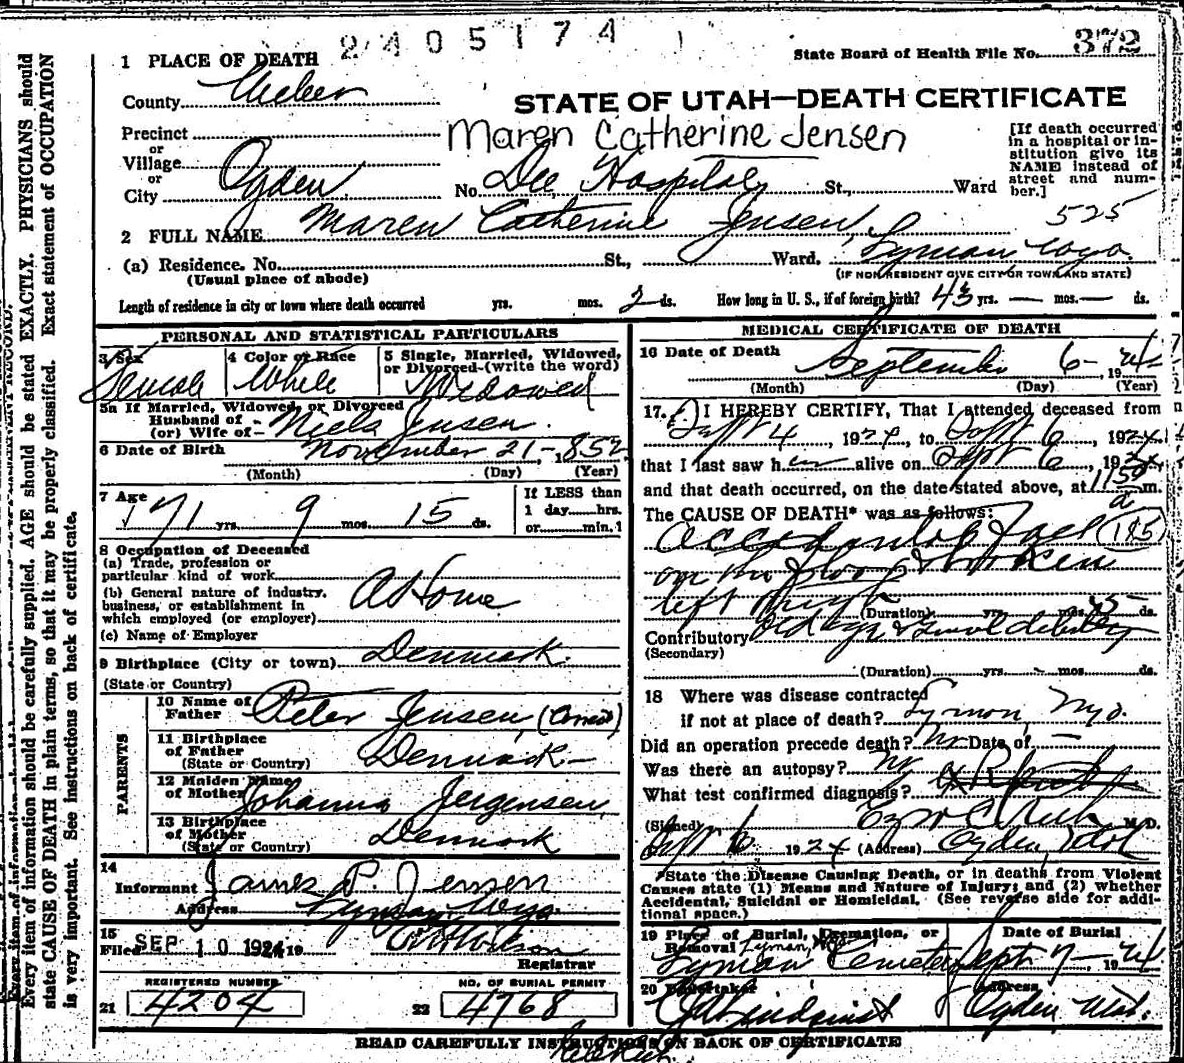 2405174
State Board of Health File No. 372
1 PLACE OF DEATH
County Weber
STATE OF UTAH—DEATH CERTIFICATE
Precinct
or
Village
or
City Ogden
Maren Catherine Jensen
No. Dee Hospital St., Ward
[If death occurred
in a hospital or in-
stitution give its
NAME instead of
street and num-
ber.]
525
2 FULL NAME Maren Catherine Jensen,
(a) Residence. No. St., Ward. Lyman Wyo.
(Usual place of abode) (IF NON RESIDENT GIVE CITY OR TOWN AND STATE)
Length of residence in city or town where death occurred yrs. mos. 2 ds. How long in U. S., if of foreign birth? 43 yrs. — mos. — ds.
PERSONAL AND STATISTICAL PARTICULARS
3 Sex
Female
4 Color or Race
White
5 Single, Married, Widowed,
or Divorced (write the word)
Widowed
5a If Married, Widowed, or Divorced
Husband of
(or) Wife of Niels Jensen.
6 Date of Birth November 21-, 1852
(Month) (Day) (Year)
7 Age
71 yrs. 9 mos. 15 ds.
If LESS than
1 day hrs.
or min.
8 Occupation of Deceased
(a) Trade, profession or
particular kind of work
(b) General nature of industry,
business, or establishment in
which employed (or employer)
At Home
(c) Name of Employer
9 Birthplace (City or town) Denmark.
(State or Country)
PARENTS
10 Name of
Father Peter Jensen,
11 Birthplace
of Father
(State or Country) Denmark-
12 Maiden Name
of Mother Johanna Jergensen,
13 Birthplace
of Mother
(State or Country) Denmark
14
Informant James P. Jensen
Address Lyman Wyo
15
Filed SEP 10 1924 19
Registrar
REGISTERED NUMBER
21 4204
NO. OF BURIAL PERMIT
22 4768
MEDICAL CERTIFICATE OF DEATH
16 Date of Death
September 6- , 1924
(Month) (Day) (Year)
17. I HEREBY CERTIFY, That I attended deceased from
Sept 4, 1924, to Sept 6, 1924,
that I last saw her alive on Sept 6, 1924,
and that death occurred, on the date stated above, at 1150 a m.
The CAUSE OF DEATH* was as follows:
Accidental Fall 185
on the floor & broken
left thigh
(Duration) yrs. mos. ds.
Contributory Old age &
(Secondary)
(Duration) yrs. mos. ds.
18 Where was disease contracted
if not at place of death? Lyman, Wyo.
Did an operation precede death? No Date of —
Was there an autopsy? No
What test confirmed diagnosis?
(Signed) M.D.
Sept 6 1924 (Address) Ogden, Utah
*State the Disease Causing Death, or in deaths from Violent
Causes state (1) Means and Nature of Injury; and (2) whether
Accidental, Suicidal or Homicidal. (See reverse side for addi-
tional space.)
19 Place of Burial, Cremation, or
Removal Lyman, Wyo
Lyman Cemetery
Date of Burial
Sept 7- 1924
20 Undertaker
Lindquist
Address
Ogden Utah.
READ CAREFULLY INSTRUCTIONS ON BACK OF CERTIFICATE
Every item of information should be carefully supplied. AGE should be stated EXACTLY. PHYSICIANS should
state CAUSE OF DEATH in plain terms, so that it may be properly classified. Exact statement of OCCUPATION
is very important. See instructions on back of certificate.